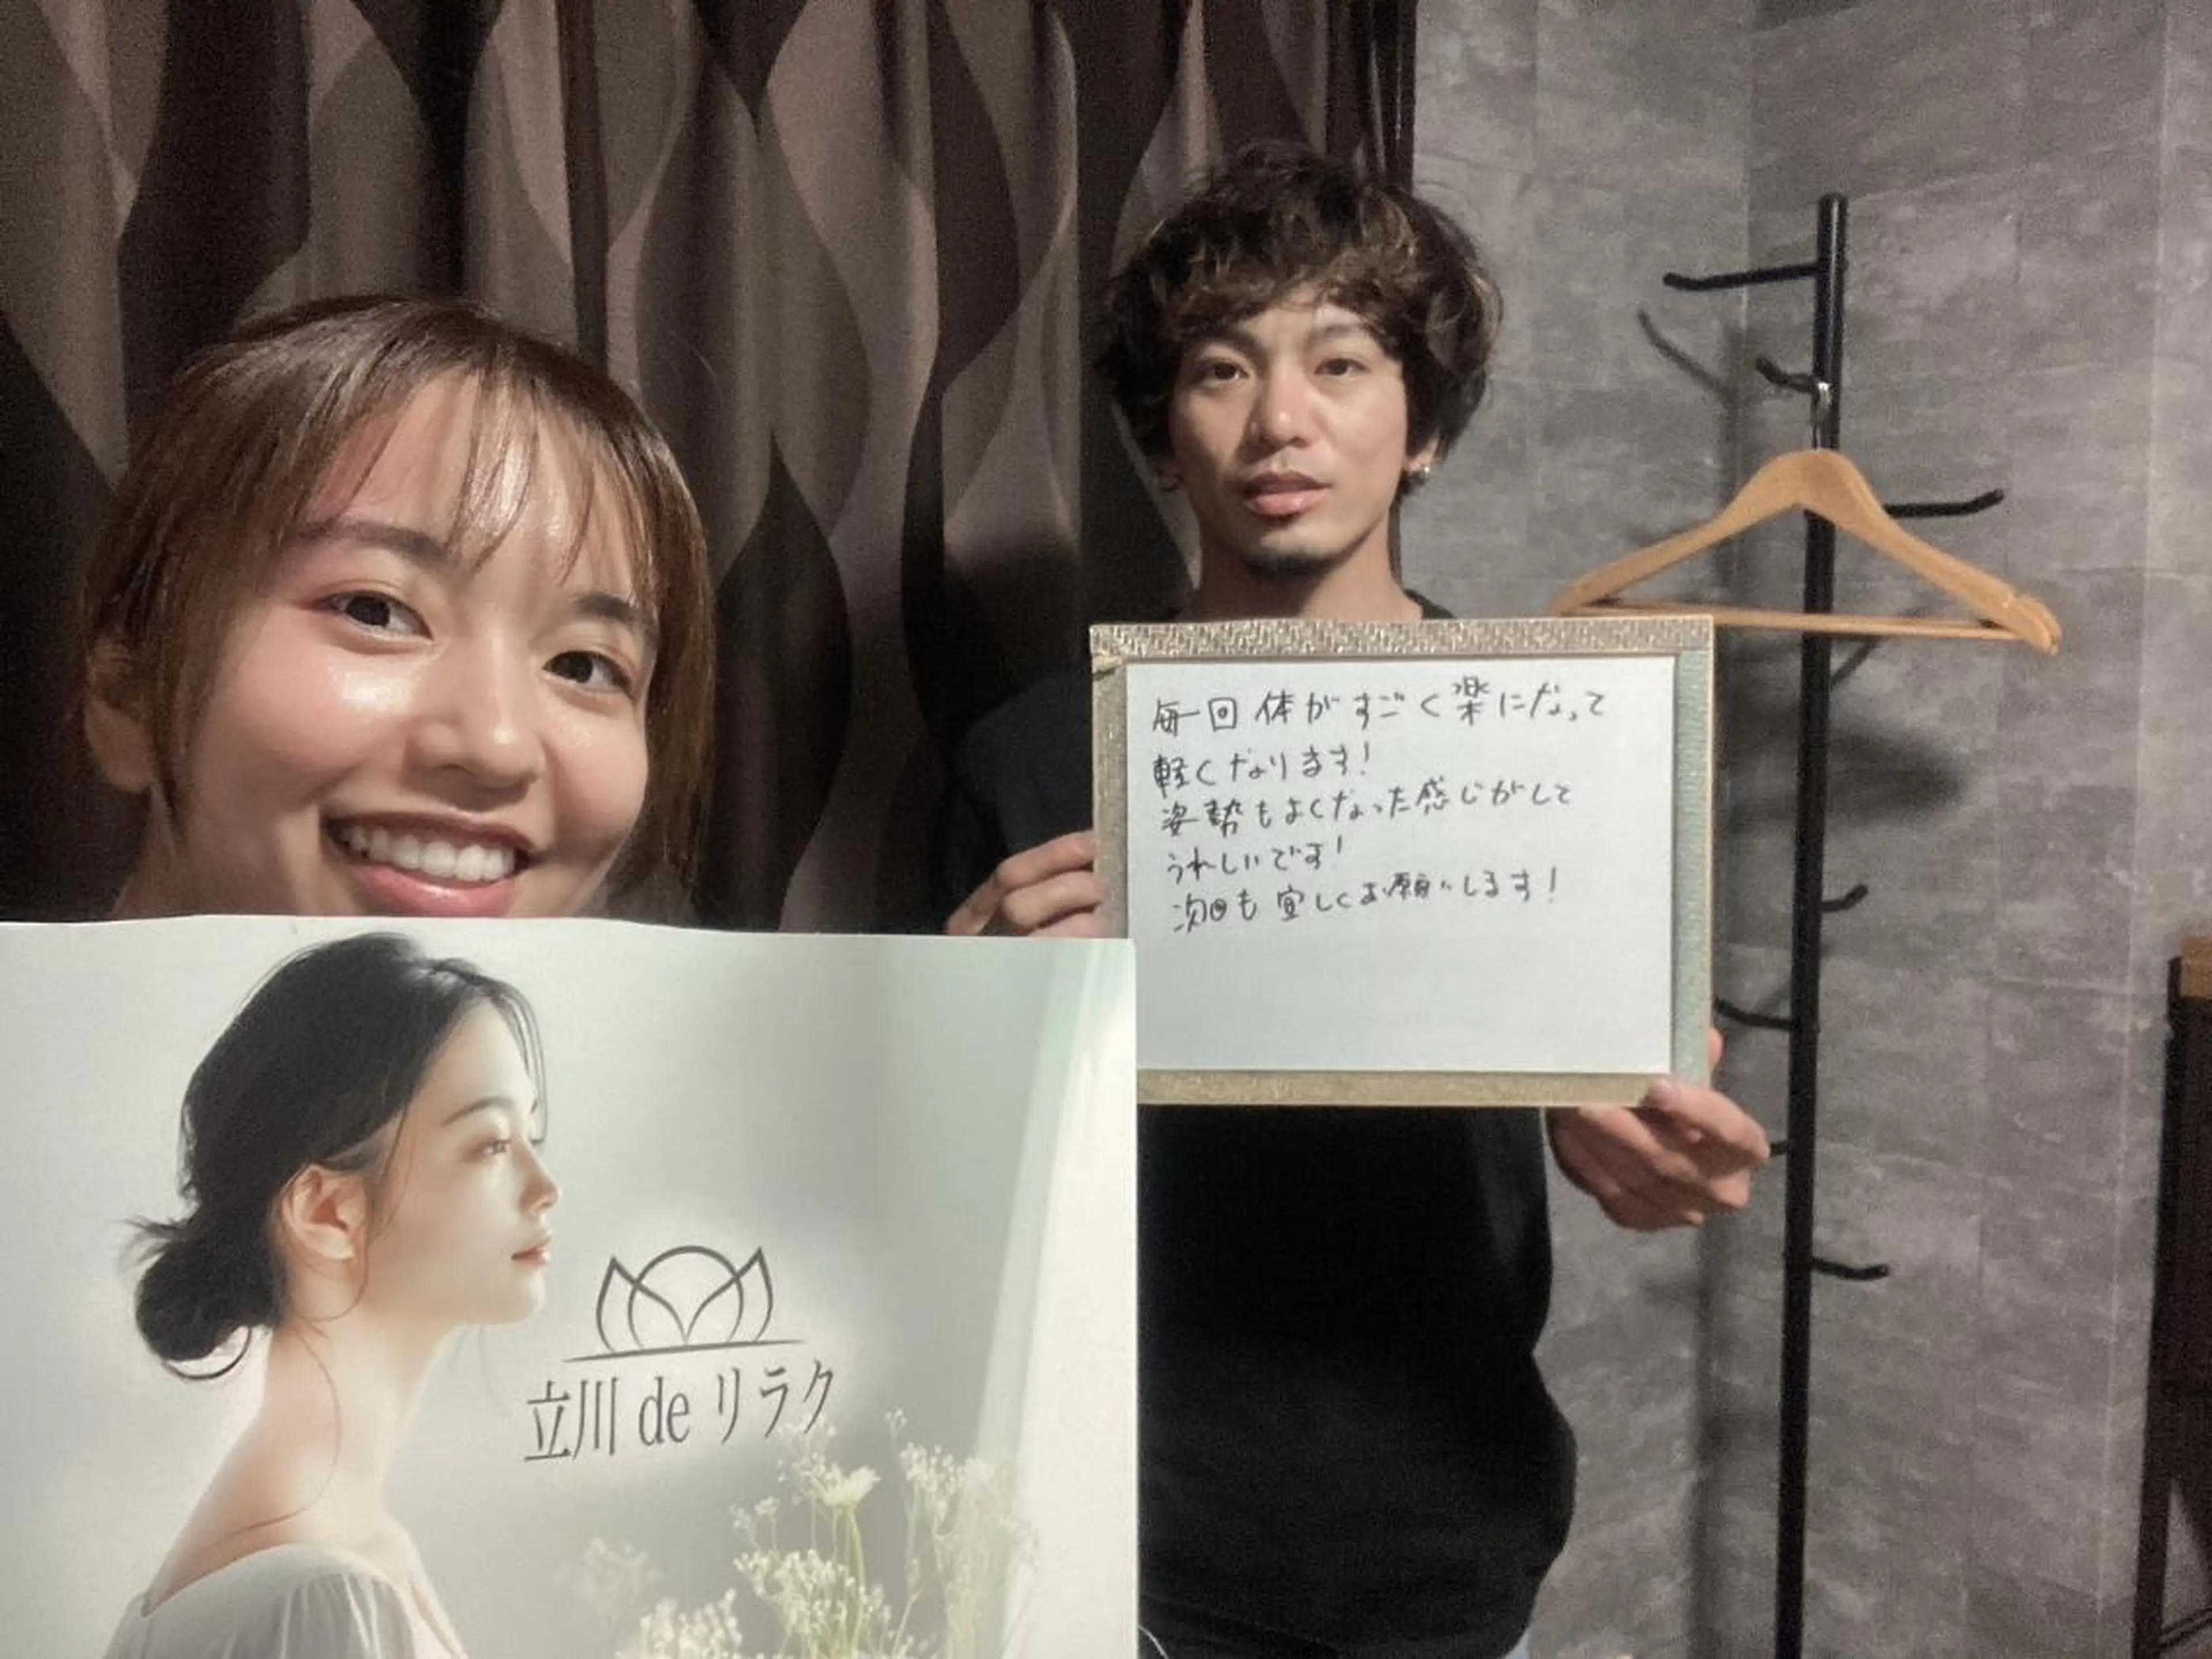 毎回体がすごく楽になって
軽くなります!
姿勢もよくなった感じがして
うれしいです!
次回も宜しくお願いします!
立川 de リラク